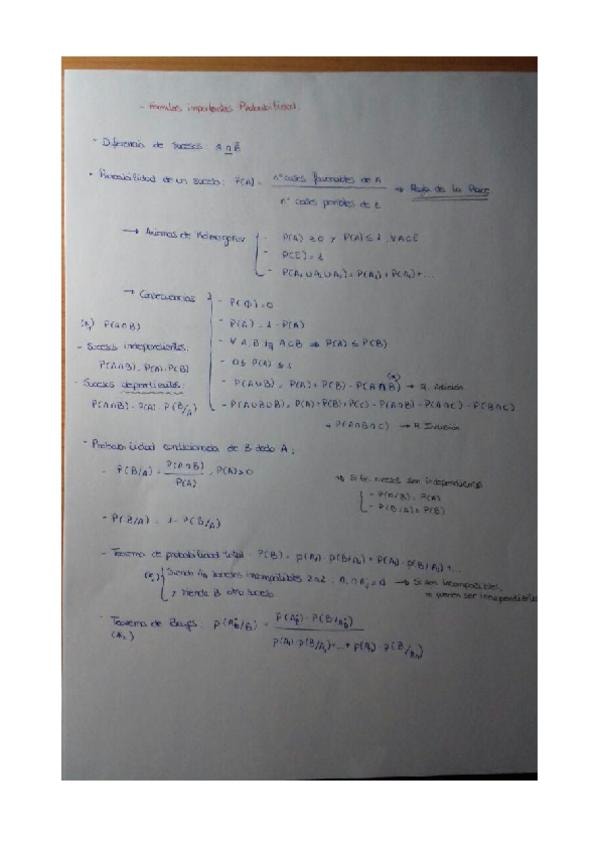 - Fórmulas importantes Probabilidad.
- Diferencia de sucesos: A ∩ B̄
- Probabilidad de un suceso: P(A) = nº casos favorables de A / nº casos posibles de E → Regla de La Place
→ Axiomas de Kolmogorov
- P(A) ≥ 0 y P(A) ≤ 1, ∀A⊂E
- P(E) = 1
- P(A₁ ∪ A₂ ∪ A₃) = P(A₁) + P(A₂) + ...
→ Consecuencias
- P(∅) = 0
- P(Ā) = 1 - P(A)
- ∀ A, B tq A⊂B ⇒ P(A) ≤ P(B)
- 0 ≤ P(A) ≤ 1
- P(A∪B) = P(A) + P(B) - P(A∩B) → R. Adición
- P(A∪B∪C) = P(A) + P(B) + P(C) - P(A∩B) - P(A∩C) - P(B∩C)
+ P(A∩B∩C) → R. Inclusión
P(A∩B)
- Sucesos independientes:
P(A∩B) = P(A)·P(B)
- Sucesos dependientes:
P(A∩B) = P(A)·P(B/A)
- Probabilidad condicionada de B dado A:
- P(B/A) = P(A∩B) / P(A), P(A) > 0
→ Si los sucesos son independientes
- P(A/B) = P(A)
- P(B/A) = P(B)
- P(B̄/A) = 1 - P(B/A)
- Teorema de probabilidad total: P(B) = P(A₁)·P(B/A₁) + P(A₂)·P(B/A₂) + ...
Siendo sucesos incompatibles 2 a 2: Aᵢ ∩ Aⱼ = ∅ → Si son incompatibles,
no pueden ser independientes
y siendo B otro suceso
- Teorema de Bayes: